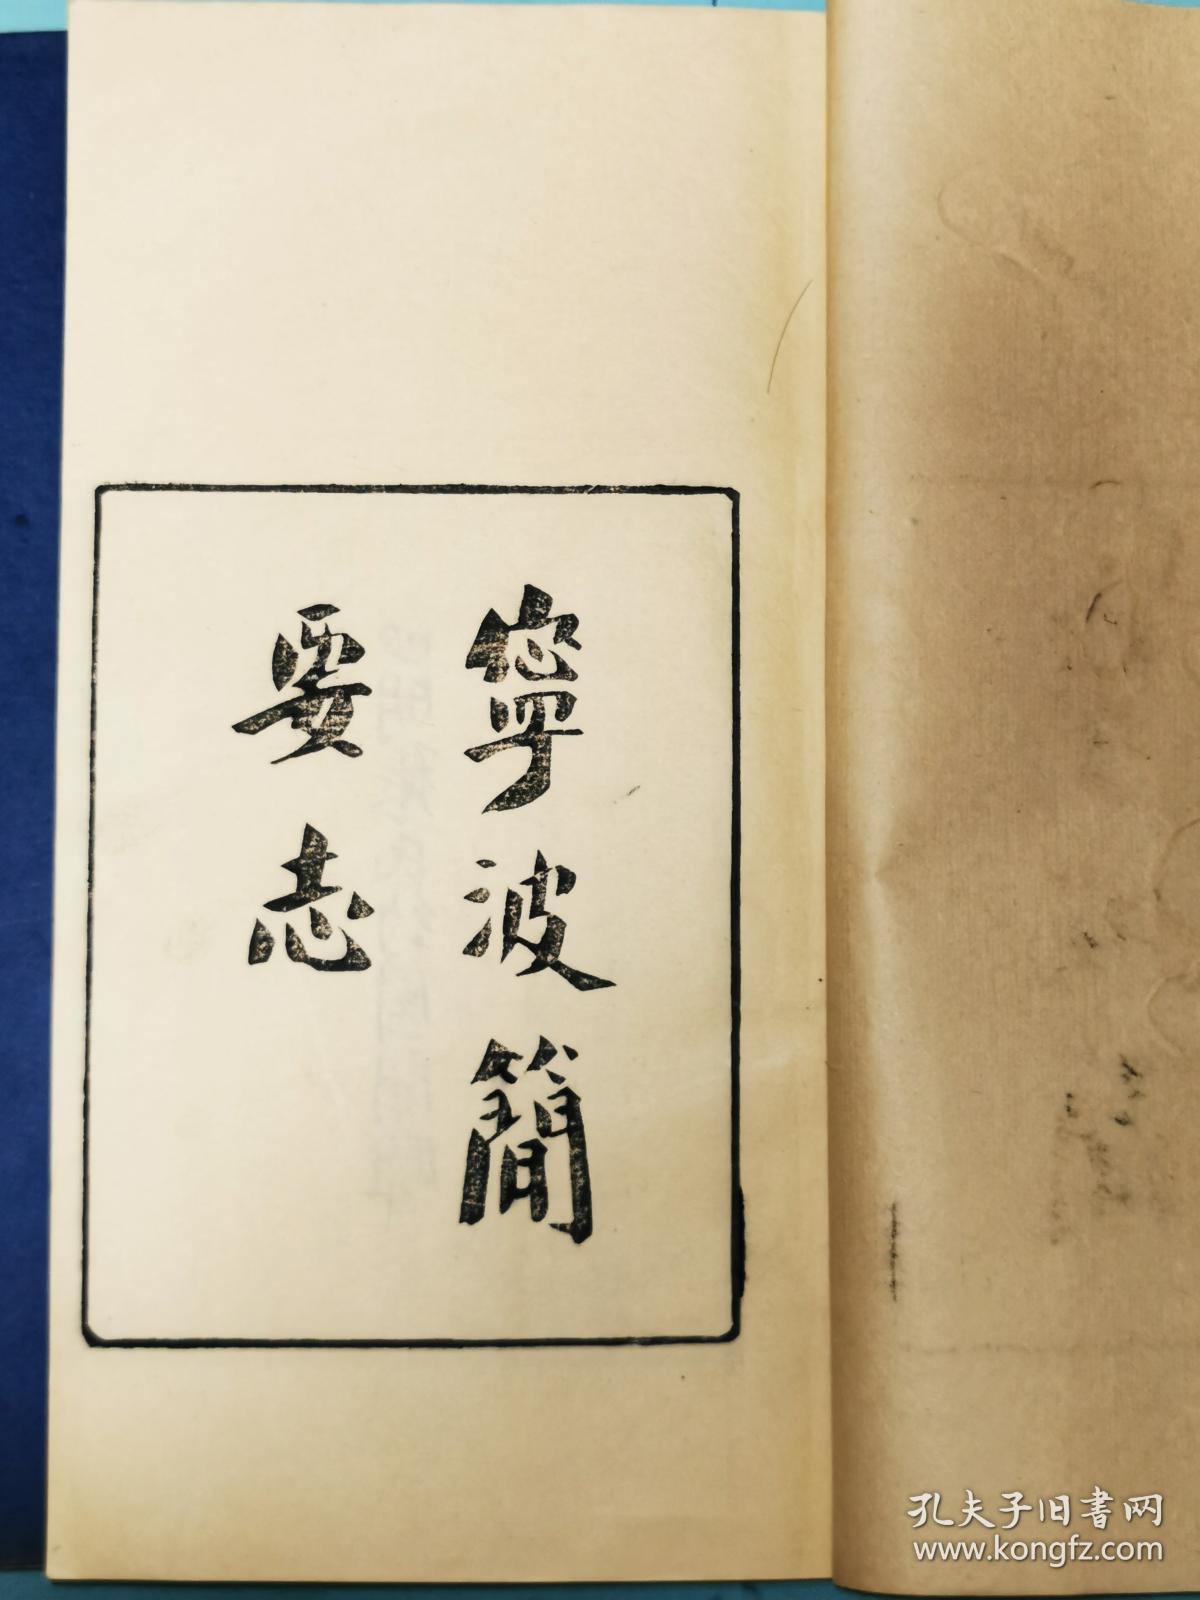 寧波簡
要志
孔夫子旧書网
www.kongfz.com